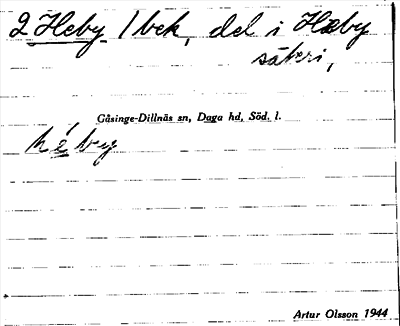 2 Heby 1 bek, del i Heby
säteri,
Gåsinge-Dillnäs sn, Daga hd, Söd. l.
héby
Artur Olsson 1944